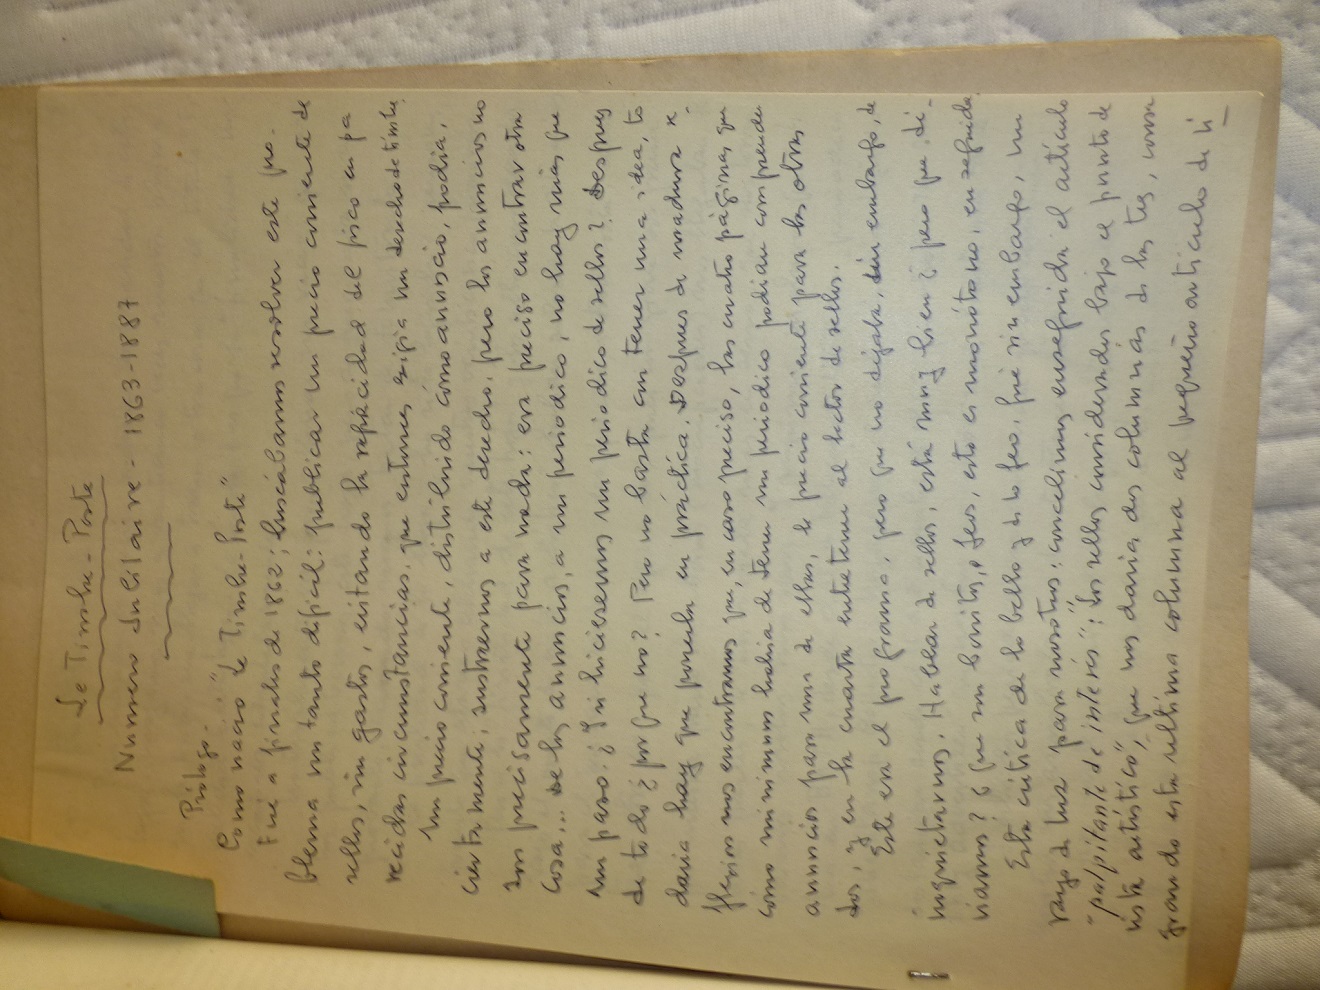 Le Timbre-Poste
Numero Jubilaire - 1863-1887
Prólogo.
Como nació "Le Timbre-Poste"
Fué a finales de 1862; buscábamos resolver este pro-
blema un tanto dificil: publicar un precio corriente de
sellos, sin gastos, evitando la rapacidad del fisco en pa
recidas circunstancias, que entonces exigia un derecho de timbre.
Un precio corriente, distribuido cómo anuncio, podia,
ciertamente, sustraernos a este derecho, pero los anuncios no
son precisamente para nada: era preciso encontrar otra
cosa... De los anuncios, a un periodico, no hay más que
un paso. ¿Y si hiciesemos un periodico de sellos? Despues
de todo ¿por que no? Pero no basta con tener una idea, to
davia hay que ponerla en práctica. Despues de madura re-
flexion nos encontramos que, en caso preciso, las cuatro páginas que
como minimum habia de tener un periodico podian comprender
anuncios para una de ellas, lo precio corriente para las otras
dos, y en la cuarta entretener al lector de sellos.
Este era el programa, pero que no dejaba, sin embargo, de
inquietarnos. Hablar de sellos, está muy bien ¿pero que di-
riamos? ó que son bonitos, o feos, esto es monótono, en seguida.
Esta critica de lo bello y de lo feo, fué sin embargo, un
rayo de luz para nosotros: concebimos enseguida el articulo
"palpitante de interés": "Los sellos considerados bajo el punto de
vista artistico", que nos daria dos columnas de las tres, consa
grando esta ultima columna al pequeño articulo de ti